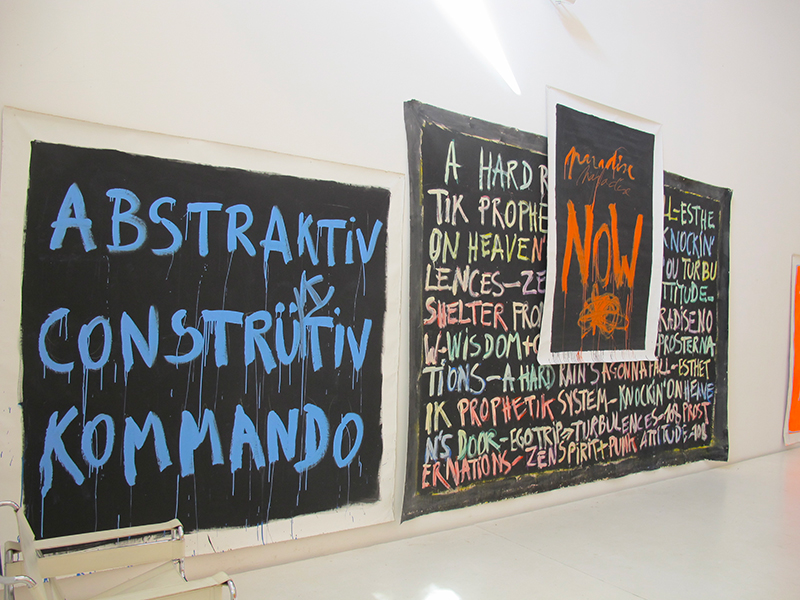 ABSTRAKTiV
CONSTRÜKTiV
KOMMANDO
A HARD R
TIK PROPHE
ON HEAVEN'
LENCES-ZE
SHELTER FRO
W-WISDOM+
TIONS-A HARD RAIN'S A GONNA FALL-ESTHET
IK PROPHETIK SYSTEM-KNOCKIN' ON HEAVE
N'S DOOR-EGOTRIP→TURBULENCES-108 PROST
ERNATIONS-ZEN SPIRIT+PUNK ATTITUDE-108
paradise
paradise
NOW
LL=ESTHE
KNOCKIN'
OU TURBU
TTITUDE-
RADISE NO
PROSTERNA